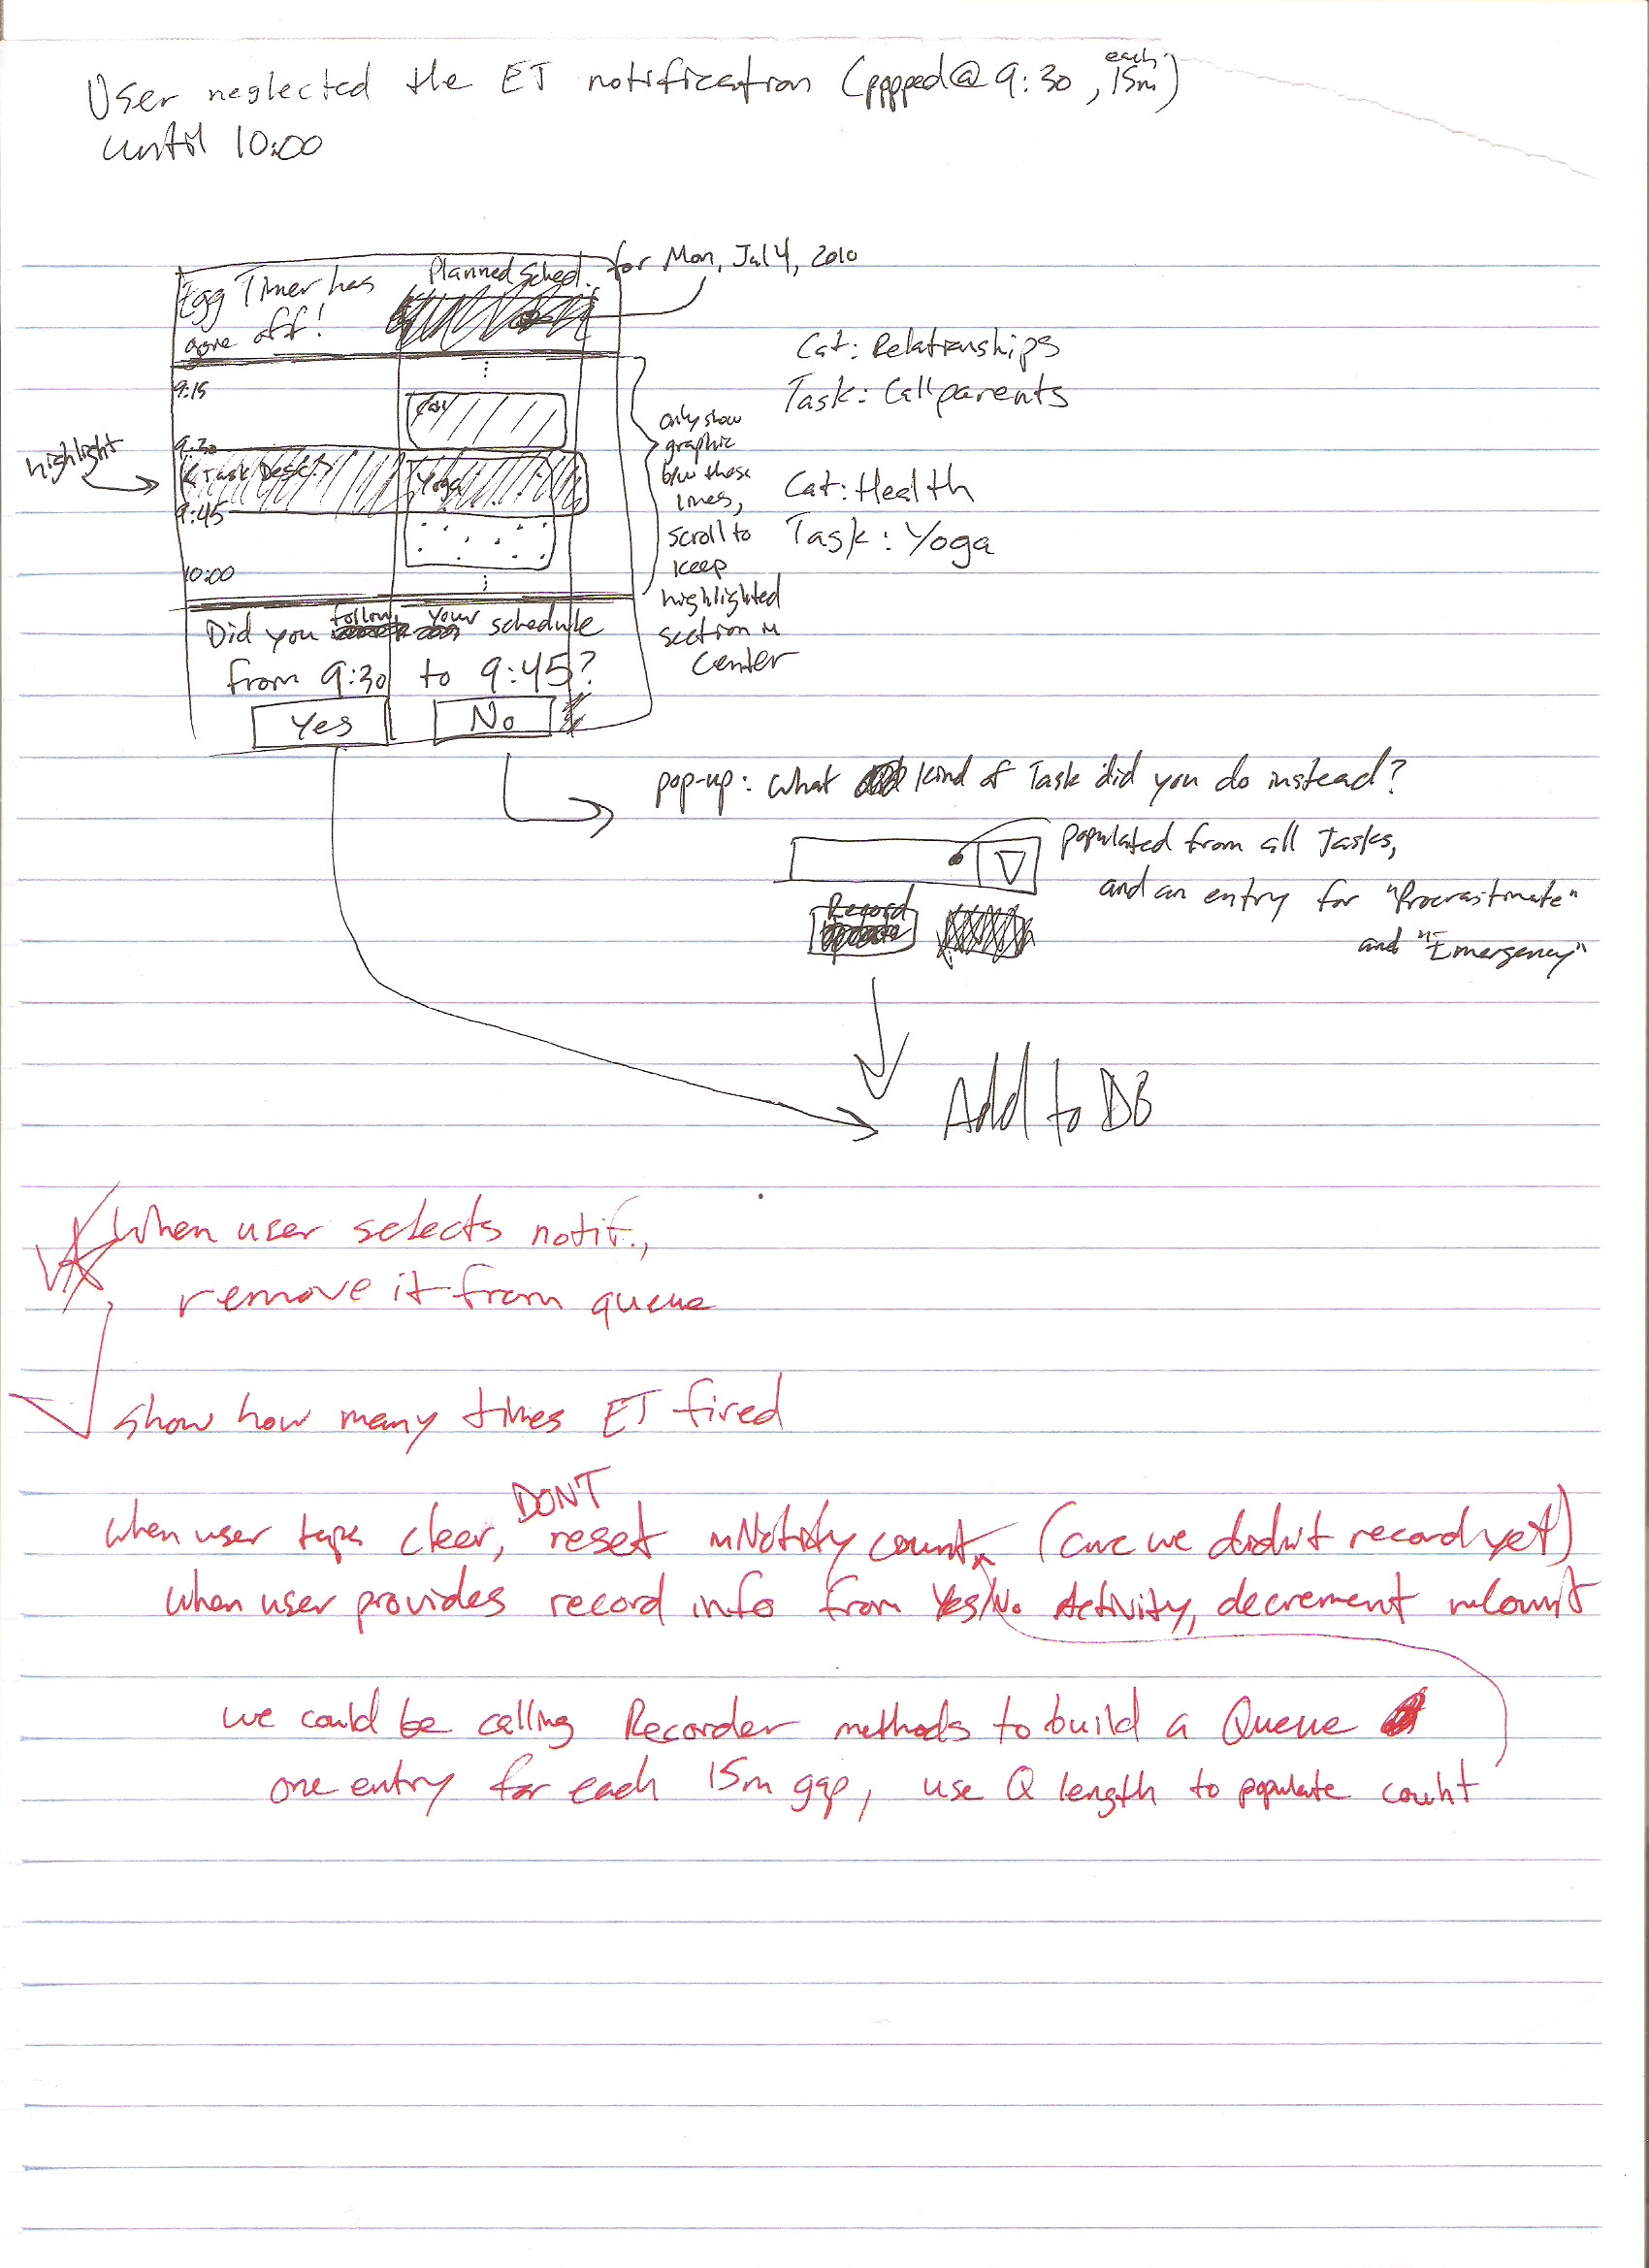 User neglected the ET notification (popped@ 9:30, each 15m)
until 10:00
Egg Timer has
gone off!
Planned Sched.
for Mon, Jul 4, 2010
9:15
Call
9:30
highlight
< Task Desc>
Yoga
9:45
10:00
Only show
graphic
b/w these
lines,
scroll to
keep
highlighted
section in
center
Cat: Relationships
Task: Call parents
Cat: Health
Task: Yoga
Did you follow your schedule
from 9:30 to 9:45?
Yes
No
pop-up: What kind of Task did you do instead?
populated from all Tasks,
and an entry for "Procrastinate"
and "Emergency"
Record
Add to DB
When user selects notif.,
remove it from queue
show how many times ET fired
when user taps clear, DONT reset mNotify count (cuz we didn't record yet)
when user provides record info from Yes/No Activity, decrement mCount
we could be calling Recorder methods to build a Queue
one entry for each 15m gap, use Q length to populate count